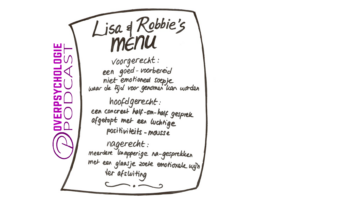 Lisa & Robbie's
MENU
voorgerecht:
een goed-voorbereid
niet emotioneel soepje
waar de tijd voor genomen kan worden
hoofdgerecht:
een concreet half-om-half gesprek
afgetopt met een luchtige
positiviteits-mousse
nagerecht:
meerdere knapperige na-gesprekken
met een glaasje zoete emotionele wijn
ter afsluiting
OVERPSYCHOLOGIE
PODCAST